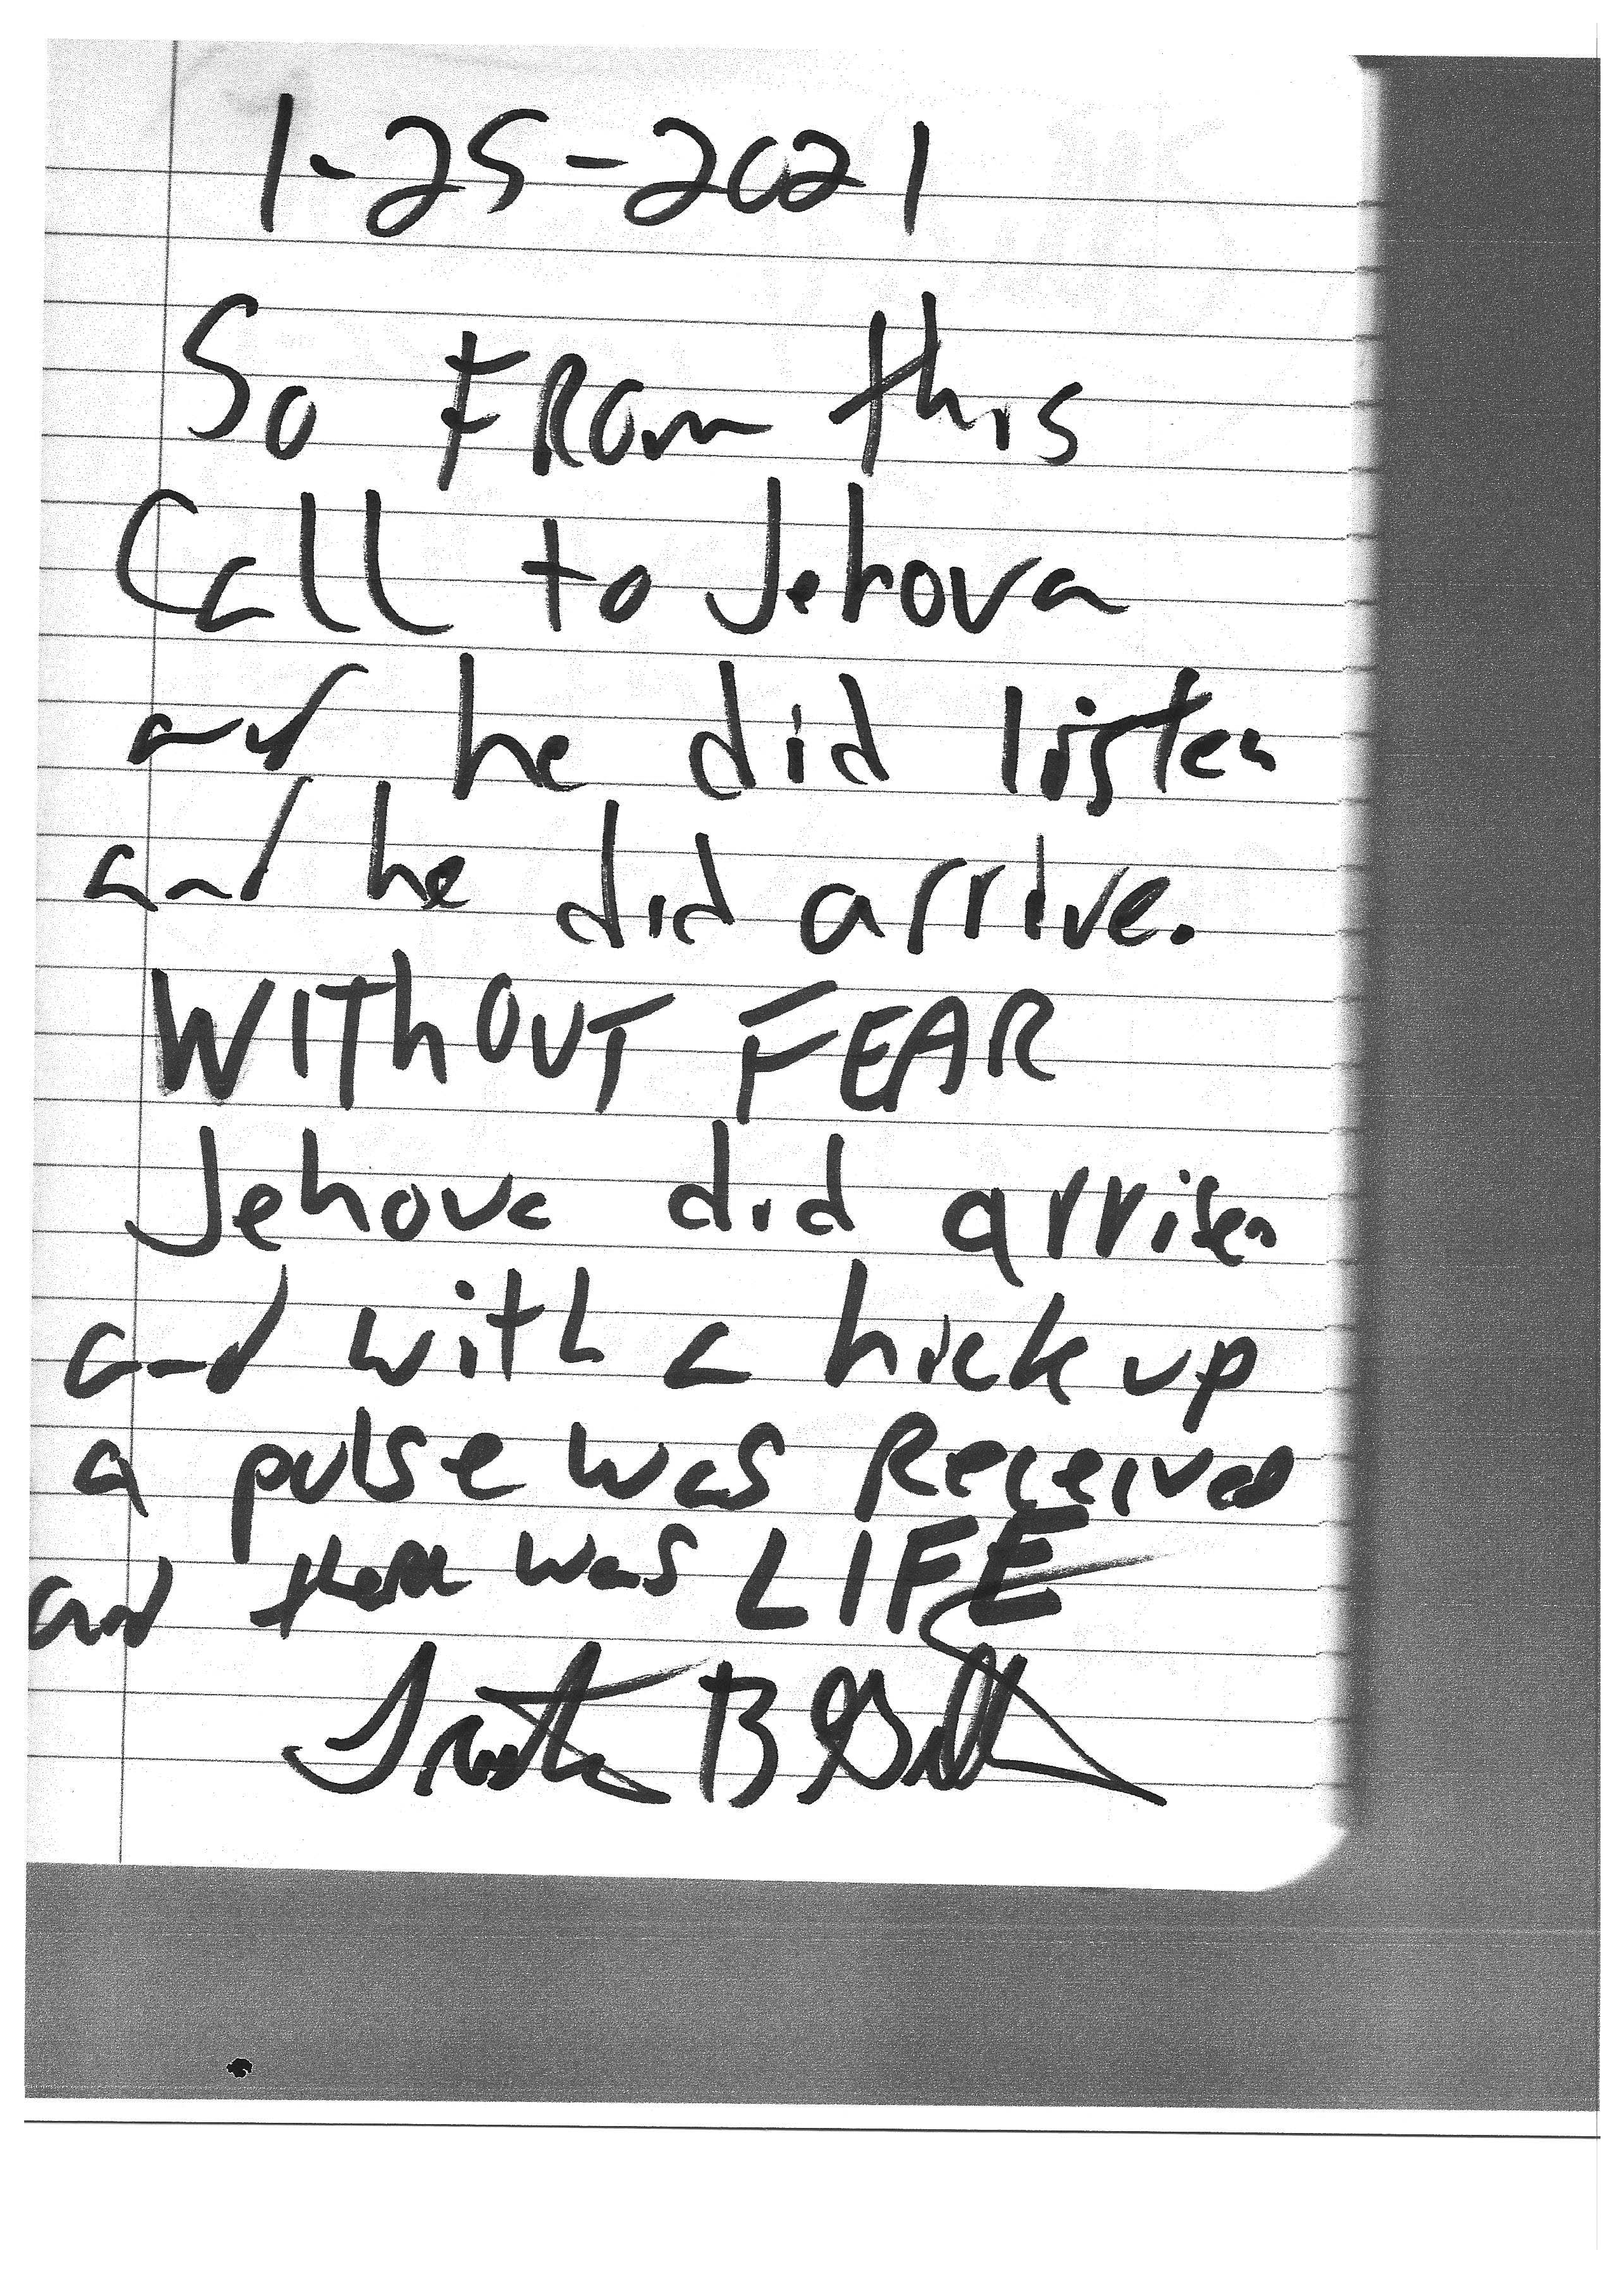 1-25-2021
So FROM this
Call to Jehova
and he did listen
and he did arrive.
WITHOUT FEAR
Jehova did arrisen
and with a hick up
a pulse was Received
and there was LIFE
B